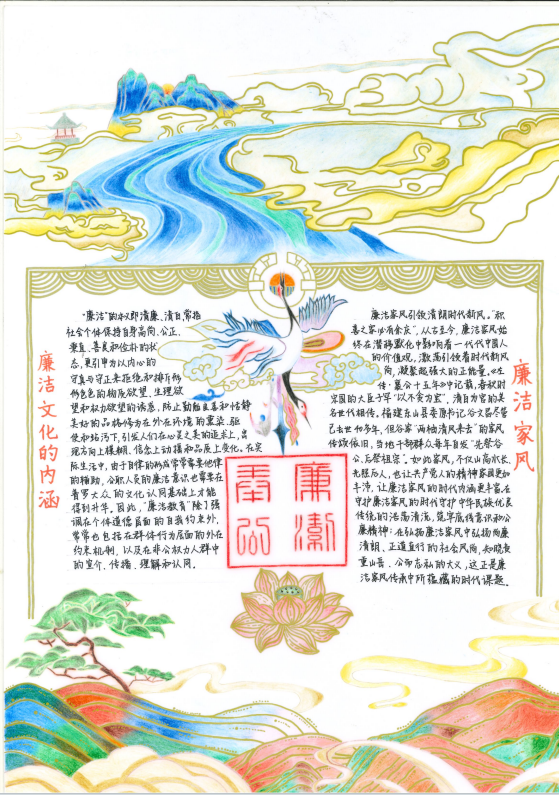 廉洁文化的内涵
"廉洁"的本义即清廉、清白,常指
社会个体保持自身高尚、公正、
秉直、善良和俭朴的状
态,更引申为以内心的
守真与守正来拒绝和排斥形
形色色的物质欲望、生理欲
望和权力欲望的诱惑,防止勤俭良善和恬静
美好的品格修为在外在环境的熏染、驱
使和玷污下,引发人们在心灵之美的追求上,出
现方向上模糊、信念上动摇和品质上变化。在实
际生活中,由于自律的形成常常需要他律
的辅助,公职人员的廉洁意识也需要在
普罗大众的文化认同基础上才能
得到升华。因此,"廉洁教育"除了强
调在个体道德层面的自我约束外,
常常也包括在群体行为层面的外在
约束机制,以及在非公权力人群中
的宣介、传播、理解和认同。
廉潔
奉公
廉洁家风
廉洁家风引领清朗时代新风。"积
善之家必有余庆",从古至今,廉洁家风始
终在潜移默化中影响着一代代中国人
的价值观,激荡引领着时代新风
尚,凝聚起强大的正能量。《左
传·襄公十五年》中记载,春秋时
宋国的大臣子罕"以不贪为宝",清白为官的美
名世代相传。福建东山县委原书记谷文昌尽管
已去世40多年,但谷家"两袖清风来去"的家风
传颂依旧,当地干部群众每年自发"先祭谷
公,后祭祖宗"。如此家风,不仅山高水长,
后人,也让共产党人的精神家园更加
丰沛。让廉洁家风的时代内涵更丰富在
守护廉洁家风的时代守护中华民族优良
传统的浩荡清流,筑牢底线意识和公
廉精神;在弘扬廉洁家风中弘扬向廉
清朗、正道直行的社会风尚,知晓廉
重山岳、公而忘私的大义,这正是廉
洁家风传承中所蕴藏的时代课题。